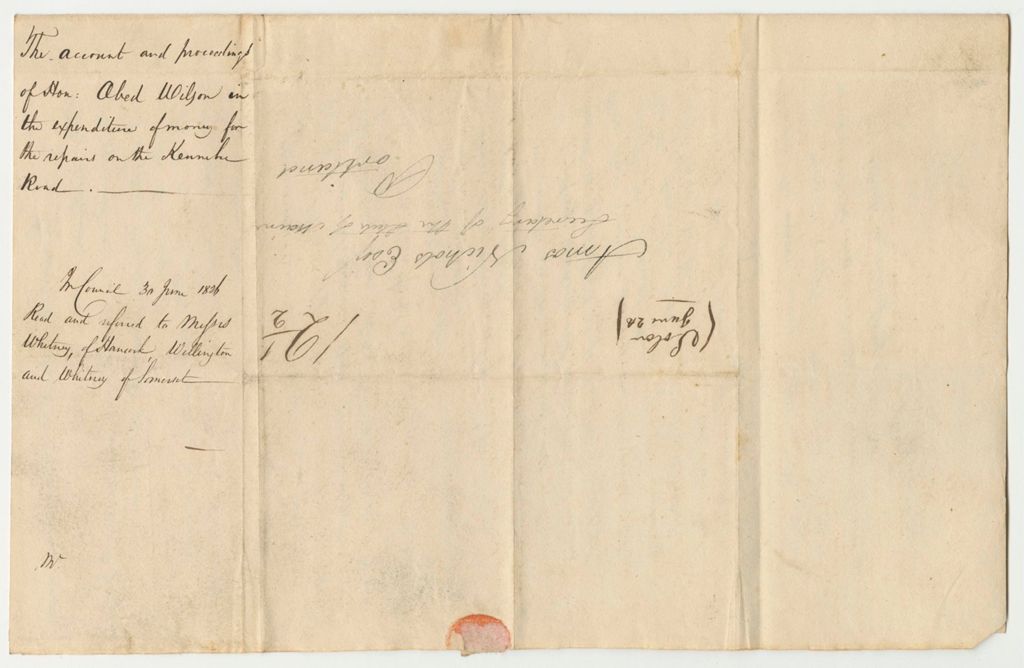 The account and proceedings
of Hon: Obed Wilson in
the expenditure of money for
the repairs on the Kennebec
Road.
In Council 30 June 1826
Read and referred to Messrs
Whitney, of Hancock, Wellington
and Whitney of Somerset
Amos Nichols Esqr
Secretary of the State of Maine
Portland
12 1/2
(Solon
June 28)